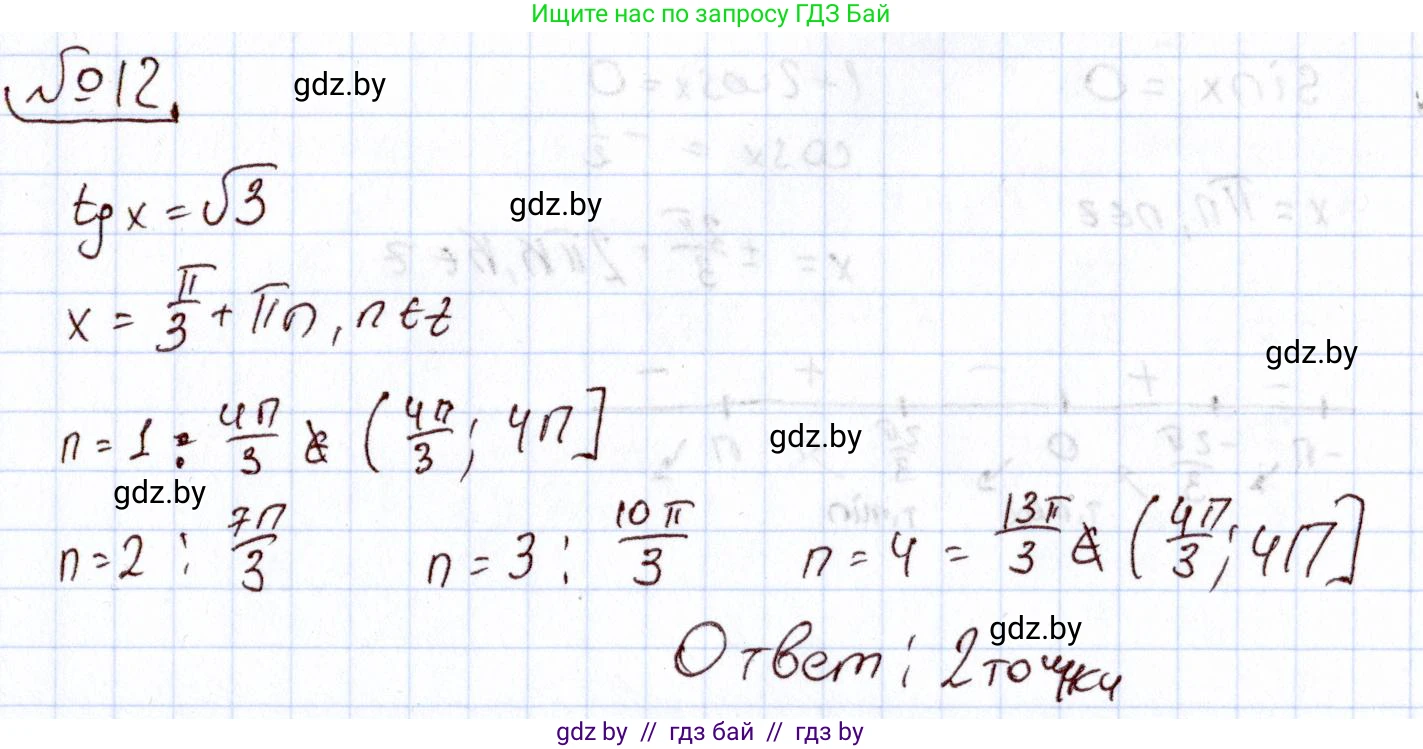 Ищите нас по запросу ГДЗ Бай
№12 gdz.by
tg x = √3 gdz.by
x = π/3 + πn, n ∈ z
gdz.by
n = 1 : 4π/3 ∉ (4π/3; 4π] gdz.by
gdz.by
n = 2 : 7π/3 n = 3 : 10π/3 n = 4 = 13π/3 ∉ (4π/3; 4π]
gdz.by
Ответ: 2 точки
gdz.by // гдз бай // гдз by